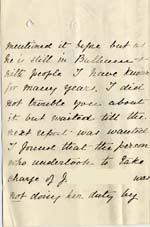 mentioned it before but as
he is still in B
with people I have known
for many years. I did
not trouble you about
it but waited till the
next report was wanted
I found that the person
who undertook to take
charge of J. was
not doing her duty by